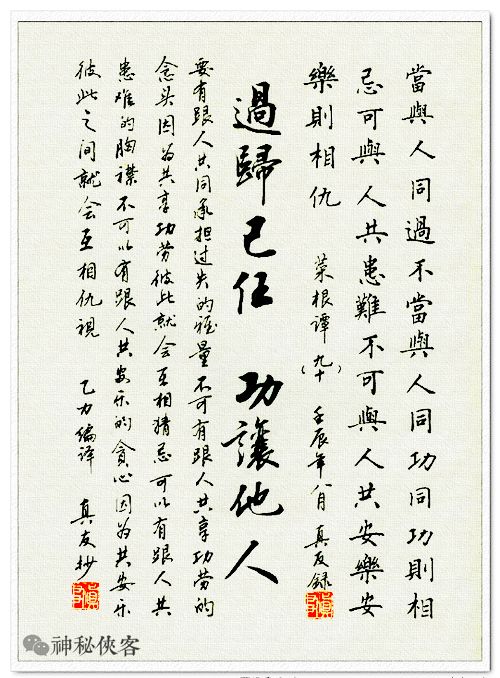 當與人同過不當與人同功同功則相
忌可與人共患難不可與人共安樂安
樂則相仇 菜根谭(九十) 壬辰年八月 真友録
過歸己任 功讓他人
要有跟人共同承担过失的雅量不可有跟人共享功劳的
念头因为共享功劳彼此就会互相猜忌可以有跟人共
患难的胸襟不可以有跟人共安乐的贪心因为共安乐
彼此之间就会互相仇視 乙力编译 真友抄
神秘俠客